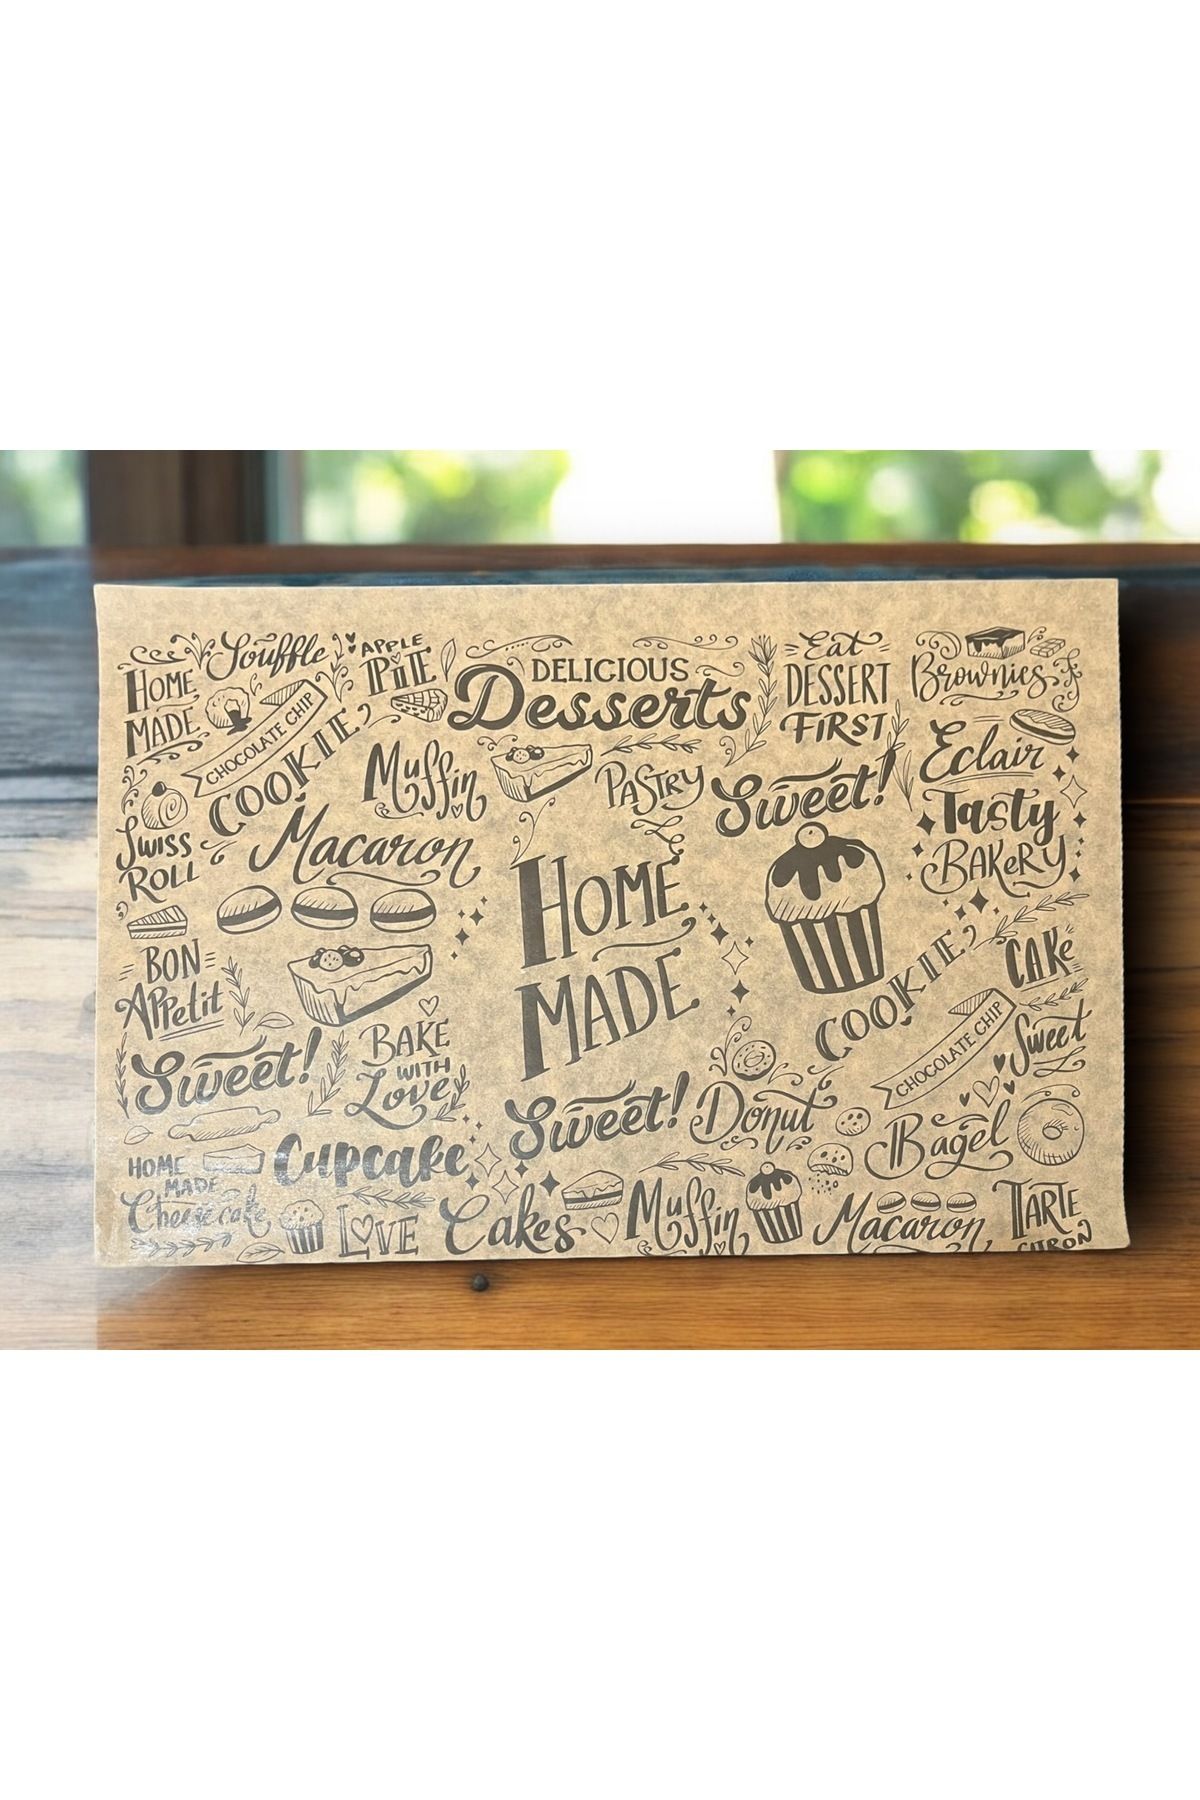 HOME
MADE
Souffle
CHOCOLATE CHIP
COOKIE
APPLE
PIE
DELICIOUS
Desserts
Eat
DESSERT
FIRST
Brownies
Eclair
Muffin
PASTRY
Sweet!
Tasty
BAKERY
SWISS
ROLL
Macaron
HOME
MADE
COOKIE
CHOCOLATE CHIP
CAKE
Sweet
BON
APPetit
Sweet!
BAKE
WITH
Love
Sweet!
Donut
Bagel
HOME
MADE
Cheese cake
Cupcake
LOVE
Cakes
Muffin
Macaron
TARTE
CITRON